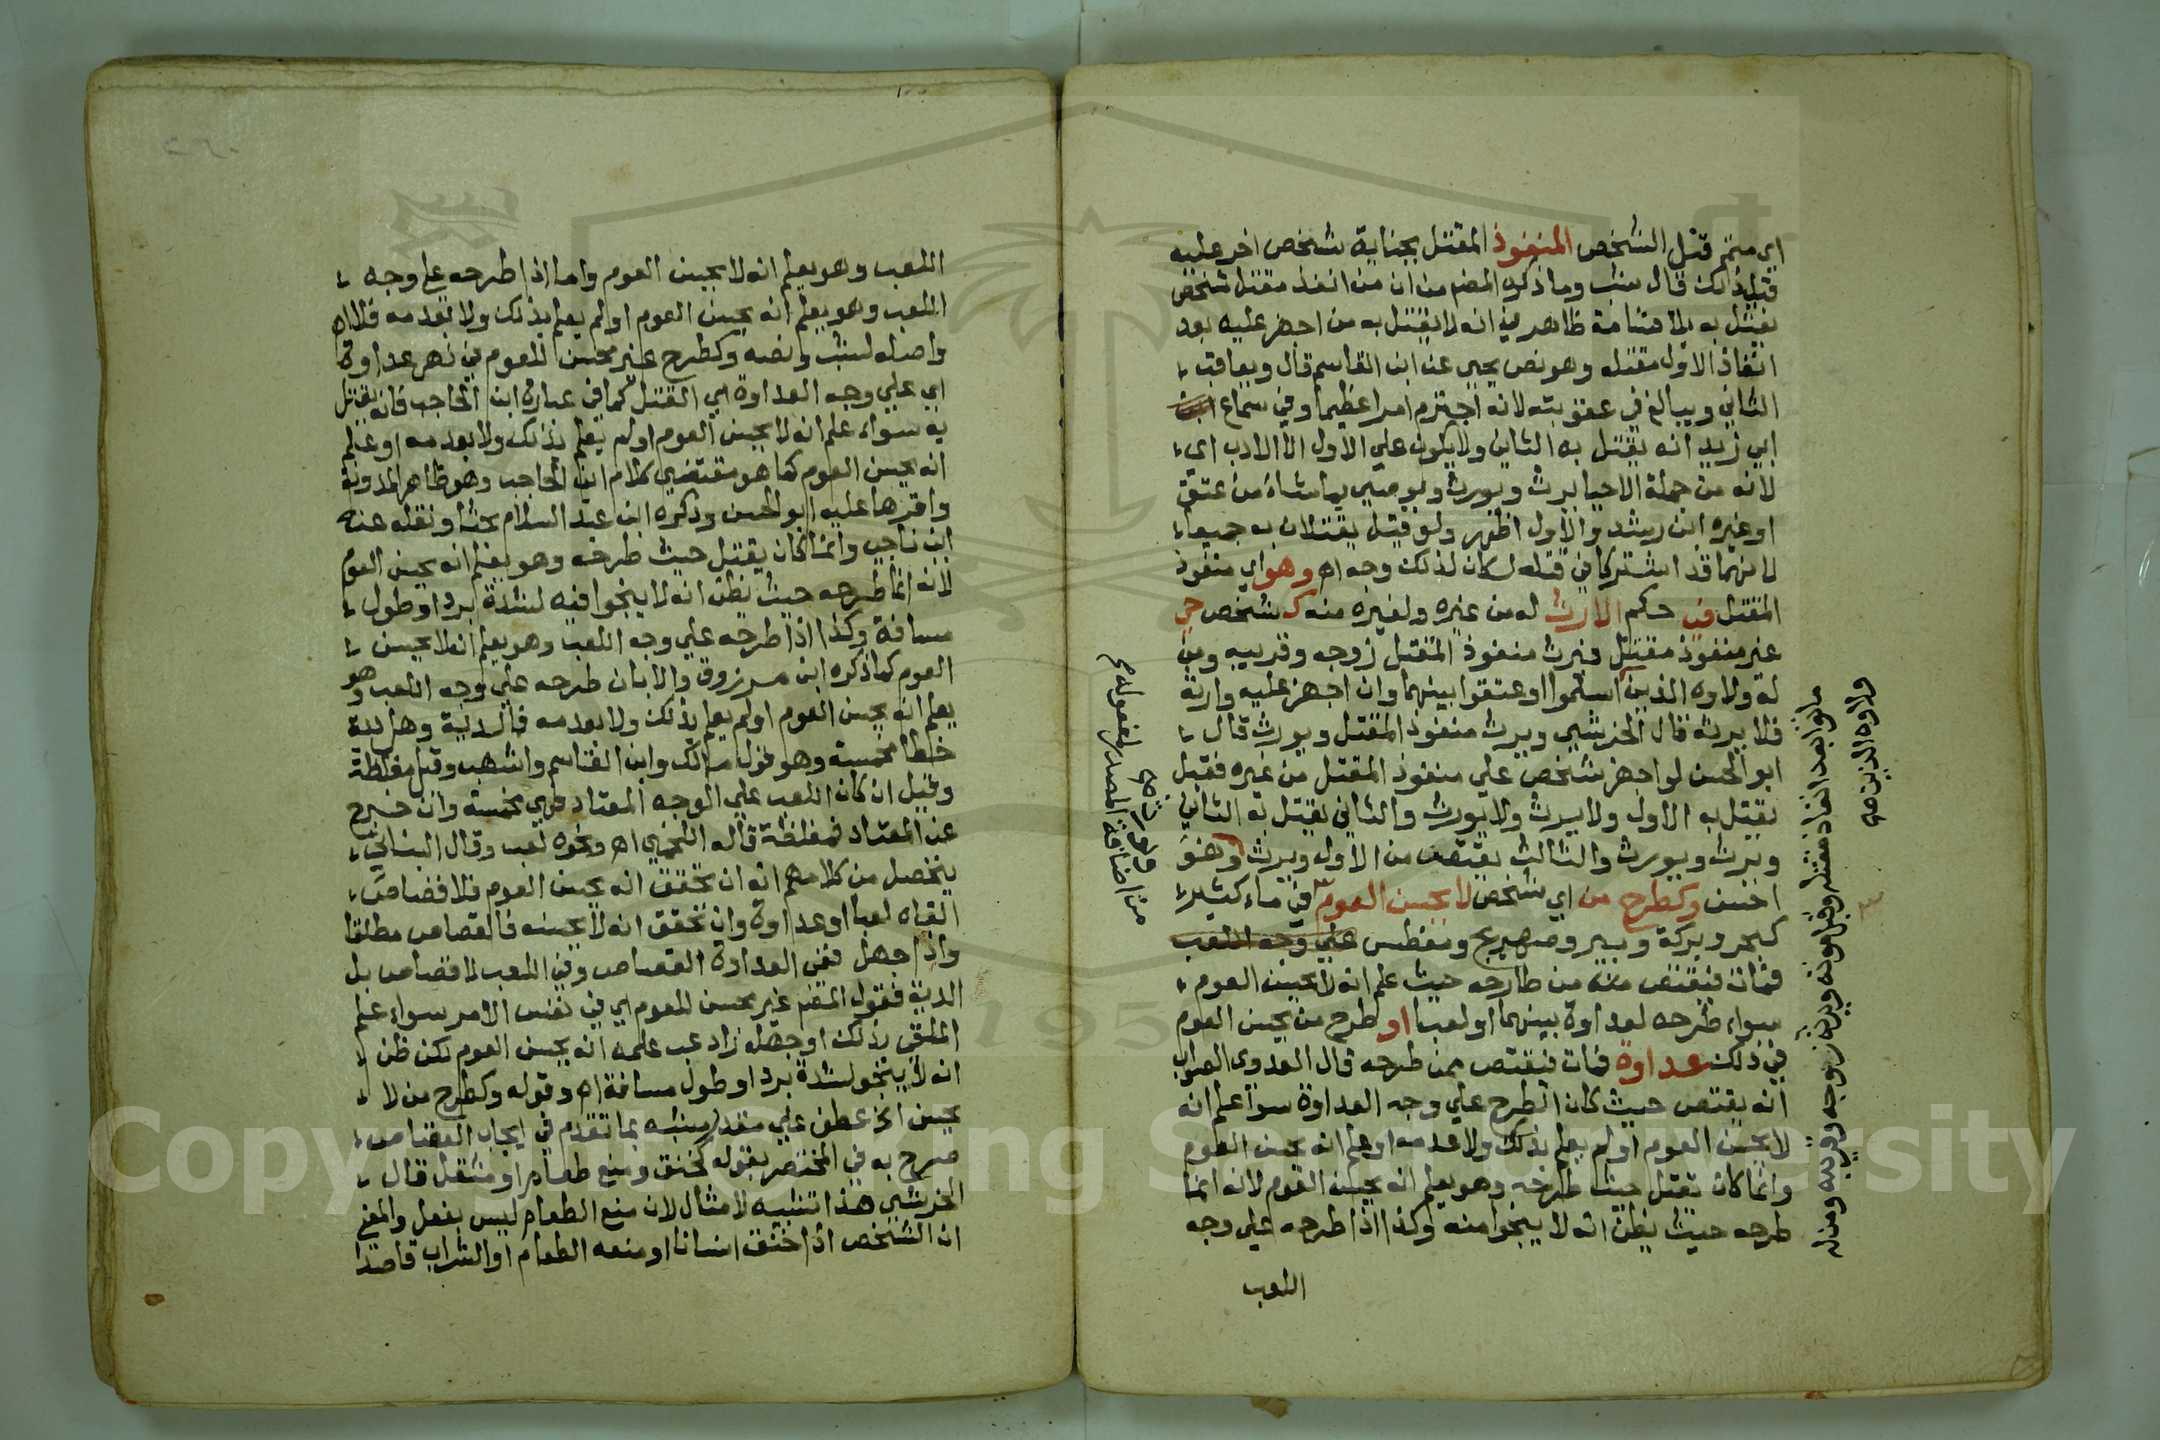 اي متمم قتل الشخص المنفوذ المقتل بجناية شخص اخر عليه
قبل ذلك قال شب وما ذكره المصنف من ان من انفذ مقتل شخص
يقتل به بلا قسامة ظاهر في انه لا يقتل به من اجهز عليه بعد
انفاذ الاول مقتله وهو نص يحيى عن ابن القاسم قال ويعاقب
الثاني ويبالغ في عقوبته لانه اجترم امرا عظيما وفي سماع
ابي زيد انه يقتل به الثاني ولا يكون علي الاول الا الادب اي
لانه من جملة الاحيا يرث ويورث ويوصي بما شاء من عتق
او غيره ابن رشد والاول اظهر ولو قيل يقتلان به جميعا
لانهما قد اشتركا في قتله لكان لذلك وجه اه وهو اي منفوذ
المقتل في حكم الارث له من غيره ولغيره منه كشخص حي
غير منفوذ مقتل فيرث منفوذ المقتل زوجه وقريبه ومن
له ولاوه الذين اسلموا او عتقوا بينهما وان اجهز عليه وارثه
فلا يرثه قال الخرشي ويرث منفوذ المقتل ويورث قال
ابو الحسن لو اجهز شخص علي منفوذ المقتل من غيره فقيل
يقتل به الاول ولا يرث ولا يورث والثاني يقتل به الثاني
ويرث ويورث والثالث يقتص من الاول ويرث وهو
احسن وكطرح من اي شخص لا يحسن العوم في ماء كثير
كبحر وبركة وبير وصهريج ومغطس علي وجه اللعب
فمات فيقتص منه من طارحه حيث علم انه لا يحسن العوم
سواء طرحه لعداوة بينهما او لعبا او طرح من يحسن العوم
في ذلك عداوة فمات فيقتص ممن طرحه قال العدوي الصواب
انه يقتص حيث كان الطرح علي وجه العداوة سوا علم انه
لا يحسن العوم او لم يعلم بذلك ولا عدمه او علم انه يحسن العوم
وانما كان يقتل حيث طرحه وهو يعلم انه يحسن العوم لانه انما
طرحه حيث يظن انه لا ينجوا منه وكذا اذا طرحه علي وجه
اللعب
من اضافة المصدر لمفعوله
ولاوه الذين
اللعب وهو يعلم انه لا يحسن العوم واما اذا طرحه علي وجه
اللعب وهو يعلم انه يحسن العوم او لم يعلم بذلك ولا بعدمه فلا اه
واصله لشب ونصه وكطرح غير محسن للعوم في نهر عداوة
اي علي وجه العداوة اي القتل كما في عبارة ابن الحاجب فانه يقتل
به سواء علم انه لا يحسن العوم او لم يعلم بذلك ولا بعدمه او علم
انه يحسن العوم كما هو مقتضي كلام ابن الحاجب وهو ظاهر المدونة
واقرها عليه ابو الحسن وذكره ابن عبد السلام بحثا ونقله عنه
ابن ناجي وانما كان يقتل حيث طرحه وهو يعلم انه يحسن العوم
لانه انما طرحه حيث يظن انه لا ينجوا فيه لشدة برد او طول
مسافة وكذا اذا طرحه علي وجه اللعب وهو يعلم انه لا يحسن
العوم كما ذكره ابن مرزوق والا بان طرحه علي وجه اللعب وهو
يعلم انه يحسن العوم او لم يعلم بذلك ولا بعدمه فالدية وهل دية
خطا مخمسة وهو قول مالك وابن القاسم واشهب وقيل مغلظة
وقيل ان كان اللعب علي الوجه المعتاد فهي مخمسة وان خرج
عن المعتاد فمغلظة قاله اللخمي اه ونحوه لعب وقال البناني
يتحصل من كلامهم انه ان تحقق انه يحسن العوم فلا قصاص
القاه لعبا او عداوة وان تحقق انه لا يحسنه فالقصاص مطلقا
واذا جهل ففي العداوة القصاص وفي اللعب لا قصاص بل
الدية فقول المصنف غير محسن للعوم اي في نفس الامر سواء علم
الملقي بذلك او جهله زاد عب علمه انه يحسن العوم لكن ظن
انه لا ينجو لشدة برد او طول مسافة اه وقوله وكطرح من لا
يحسن الخ عطف علي مقدر مشبه بما تقدم في ايجاب القصاص
صرح به في المختصر بقوله كخنق ومنع طعام او مثقل قال
الخرشي هذا تشبيه لا مثال لان منع الطعام ليس بفعل والمعني
ان الشخص اذا خنق انسانا او منعه الطعام او الشراب قاصدا
Copyright © King Saud University
195